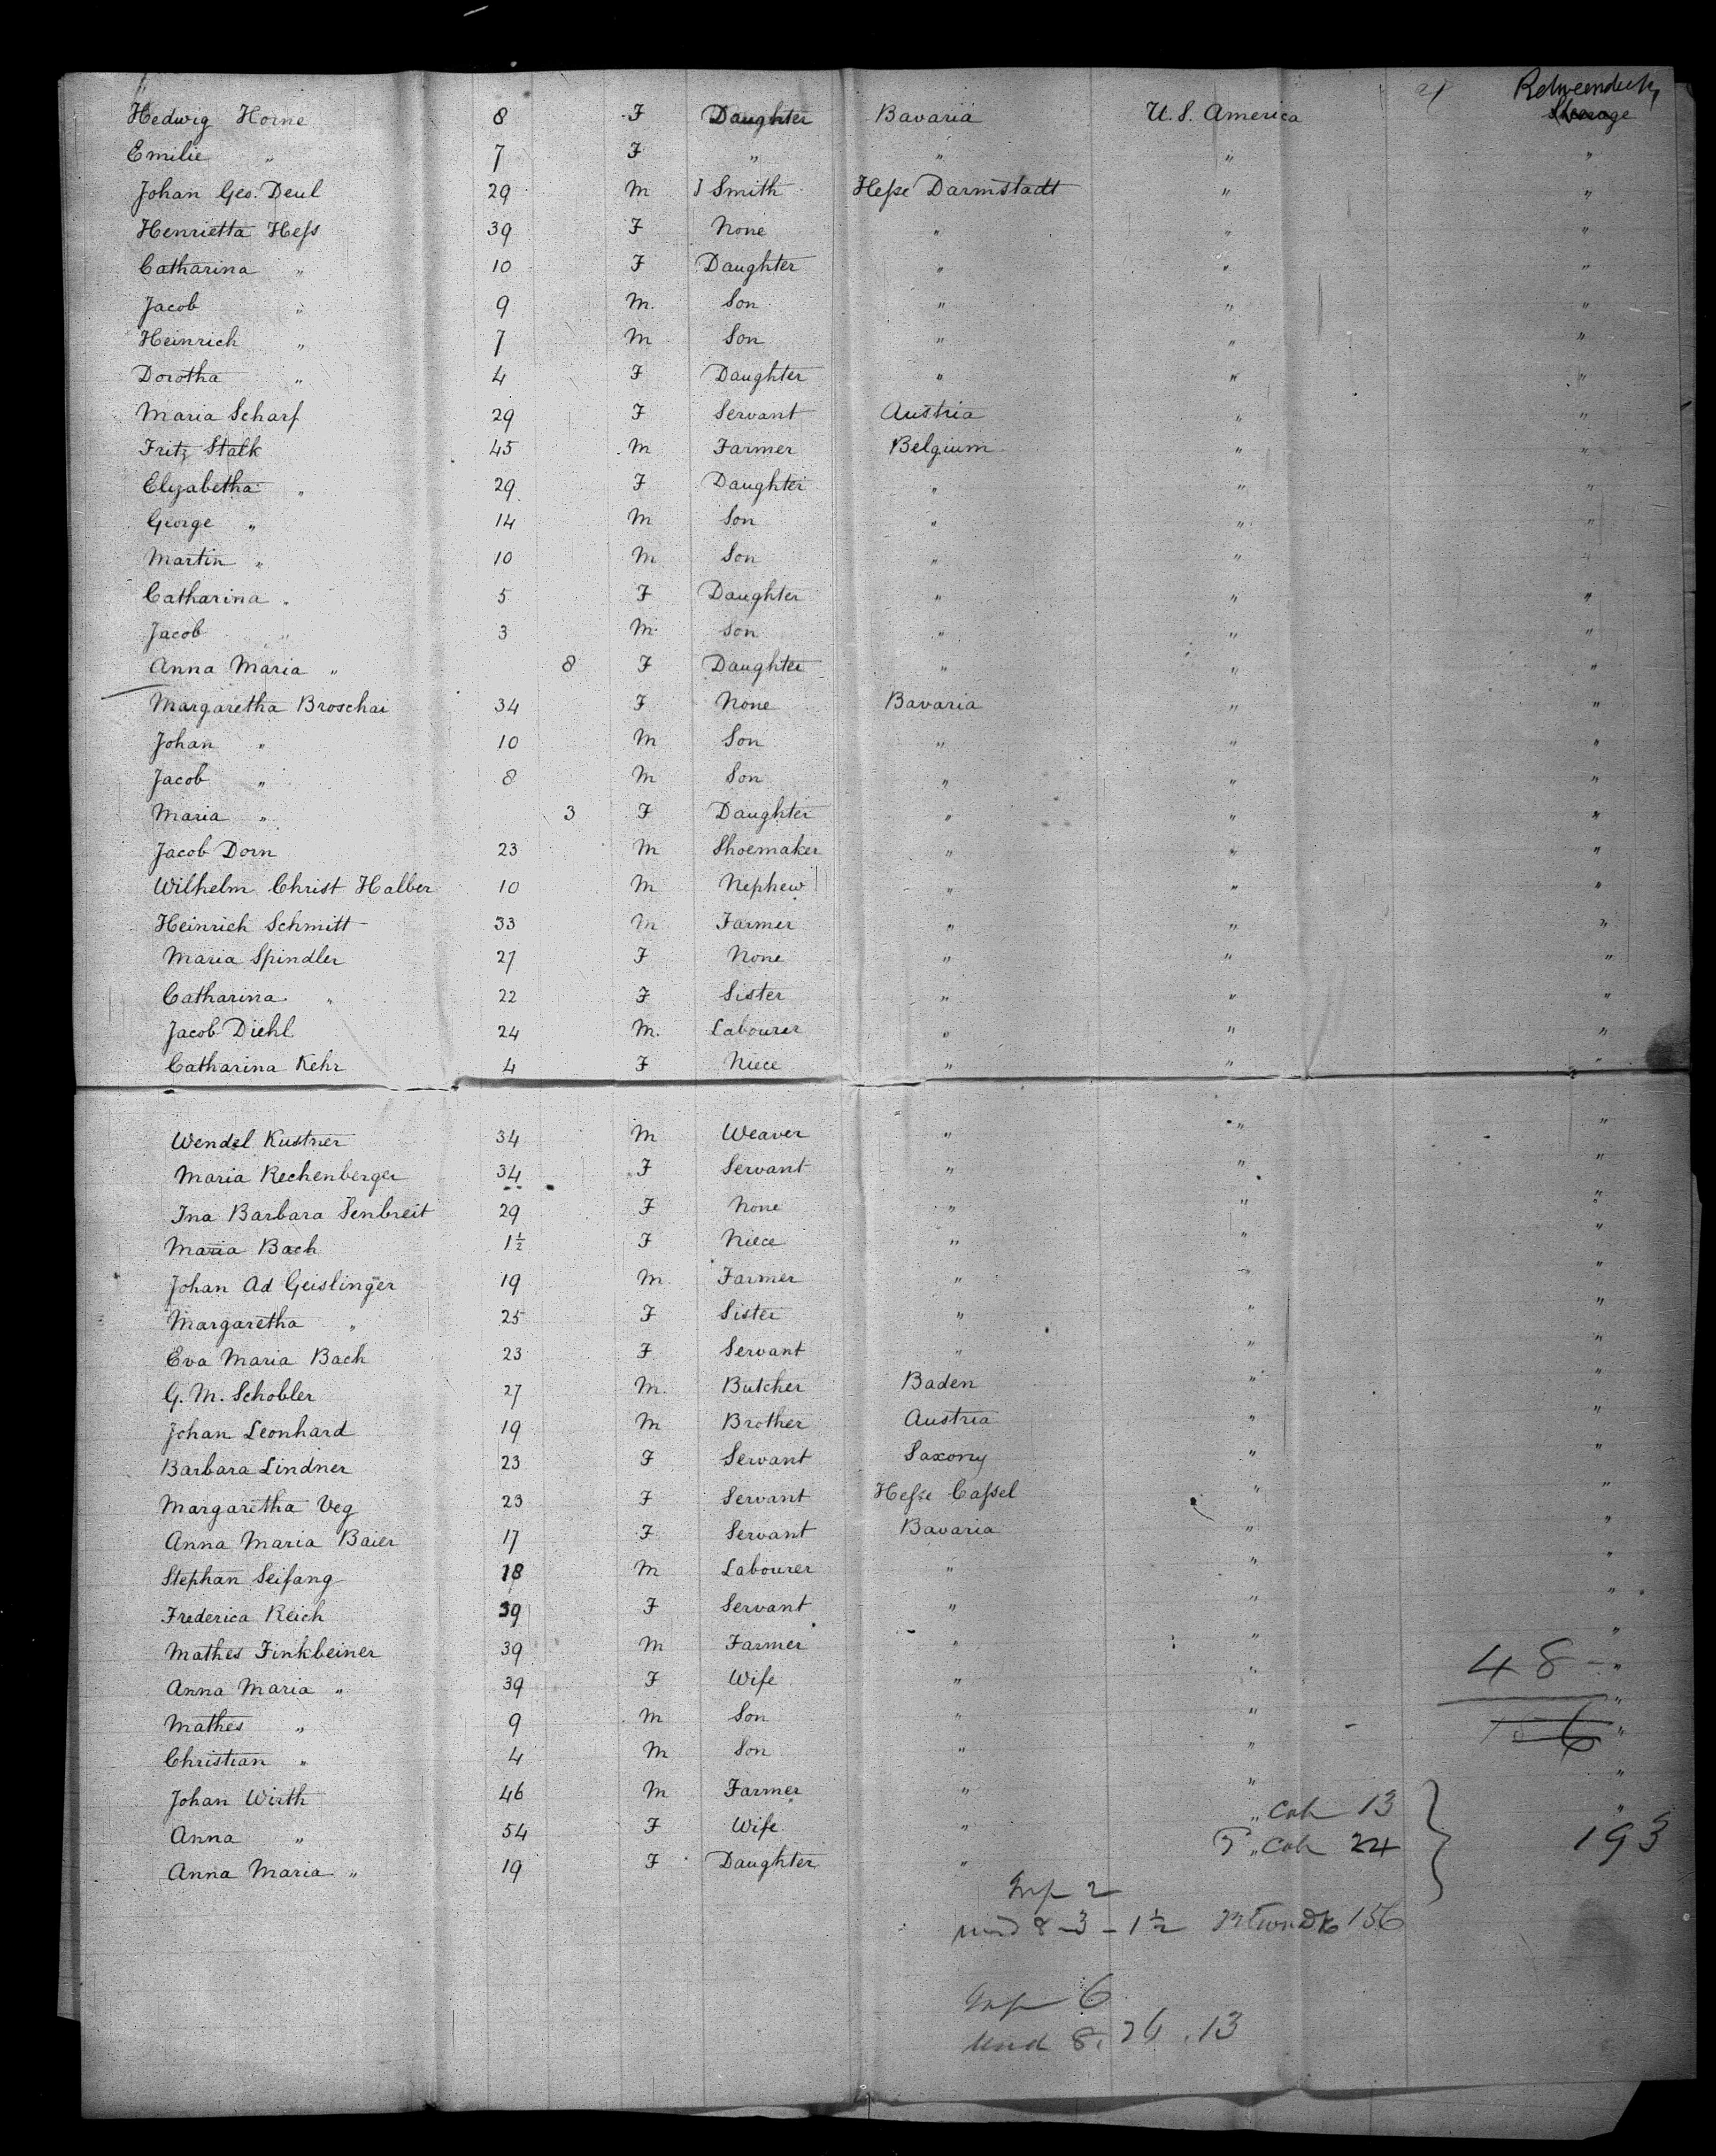 Betweendecks
Hedwig Horne 8 F Daughter Bavaria U. S. America Steerage
Emilie " 7 F " " " "
Johan Geo. Deul 29 M Smith Heſse Darmstadt " "
Henrietta Heſs 39 F None " " "
Catharina " 10 F Daughter " " "
Jacob " 9 M. Son " " "
Heinrich " 7 M Son " " "
Dorotha " 4 F Daughter " " "
Maria Scharf 29 F Servant Austria " "
Fritz Stalk 45 M Farmer Belgium " "
Elizabetha " 29 F Daughter " " "
George " 14 M Son " " "
Martin " 10 M Son " " "
Catharina " 5 F Daughter " " "
Jacob " 3 M Son " " "
Anna Maria " 8 F Daughter " " "
Margaretha Broschai 34 F None Bavaria " "
Johan " 10 M Son " " "
Jacob " 8 M Son " " "
Maria " 3 F Daughter " " "
Jacob Dorn 23 M Shoemaker " " "
Wilhelm Christ Halber 10 M Nephew " " "
Heinrich Schmitt 33 M Farmer " " "
Maria Spindler 27 F None " " "
Catharina " 22 F Sister " " "
Jacob Diehl 24 M. Labourer " " "
Catharina Kehr 4 F Niece " " "
Wendel Kustner 34 M Weaver " " "
Maria Rechenberger 34 F Servant " " "
Ina Barbara Senbreit 29 F None " " "
Maria Bach 1½ F Niece " " "
Johan Ad Geislinger 19 M Farmer " " "
Margaretha " 25 F Sister " " "
Eva Maria Bach 23 F Servant " " "
G. M. Schobler 27 M. Butcher Baden " "
Johan Leonhard 19 M Brother Austria " "
Barbara Lindner 23 F Servant Saxony " "
Margaretha Veg 23 F Servant Heſse Caſsel " "
Anna Maria Baier 17 F Servant Bavaria " "
Stephan Seifang 18 M Labourer " " "
Frederica Reich 39 F Servant " " "
Mathes Finkbeiner 39 M Farmer " " "
Anna Maria " 39 F Wife " " 48 "
Mathes " 9 M Son " " "
Christian " 4 M Son " " "
Johan Wirth 46 M Farmer " " "
Anna " 54 F Wife " " Cab 13 "
Anna Maria " 19 F Daughter " " Cab 24 193
Inf 2
und 8 - 3 - 1½ 156
Inf 6
und 8. 26 . 13